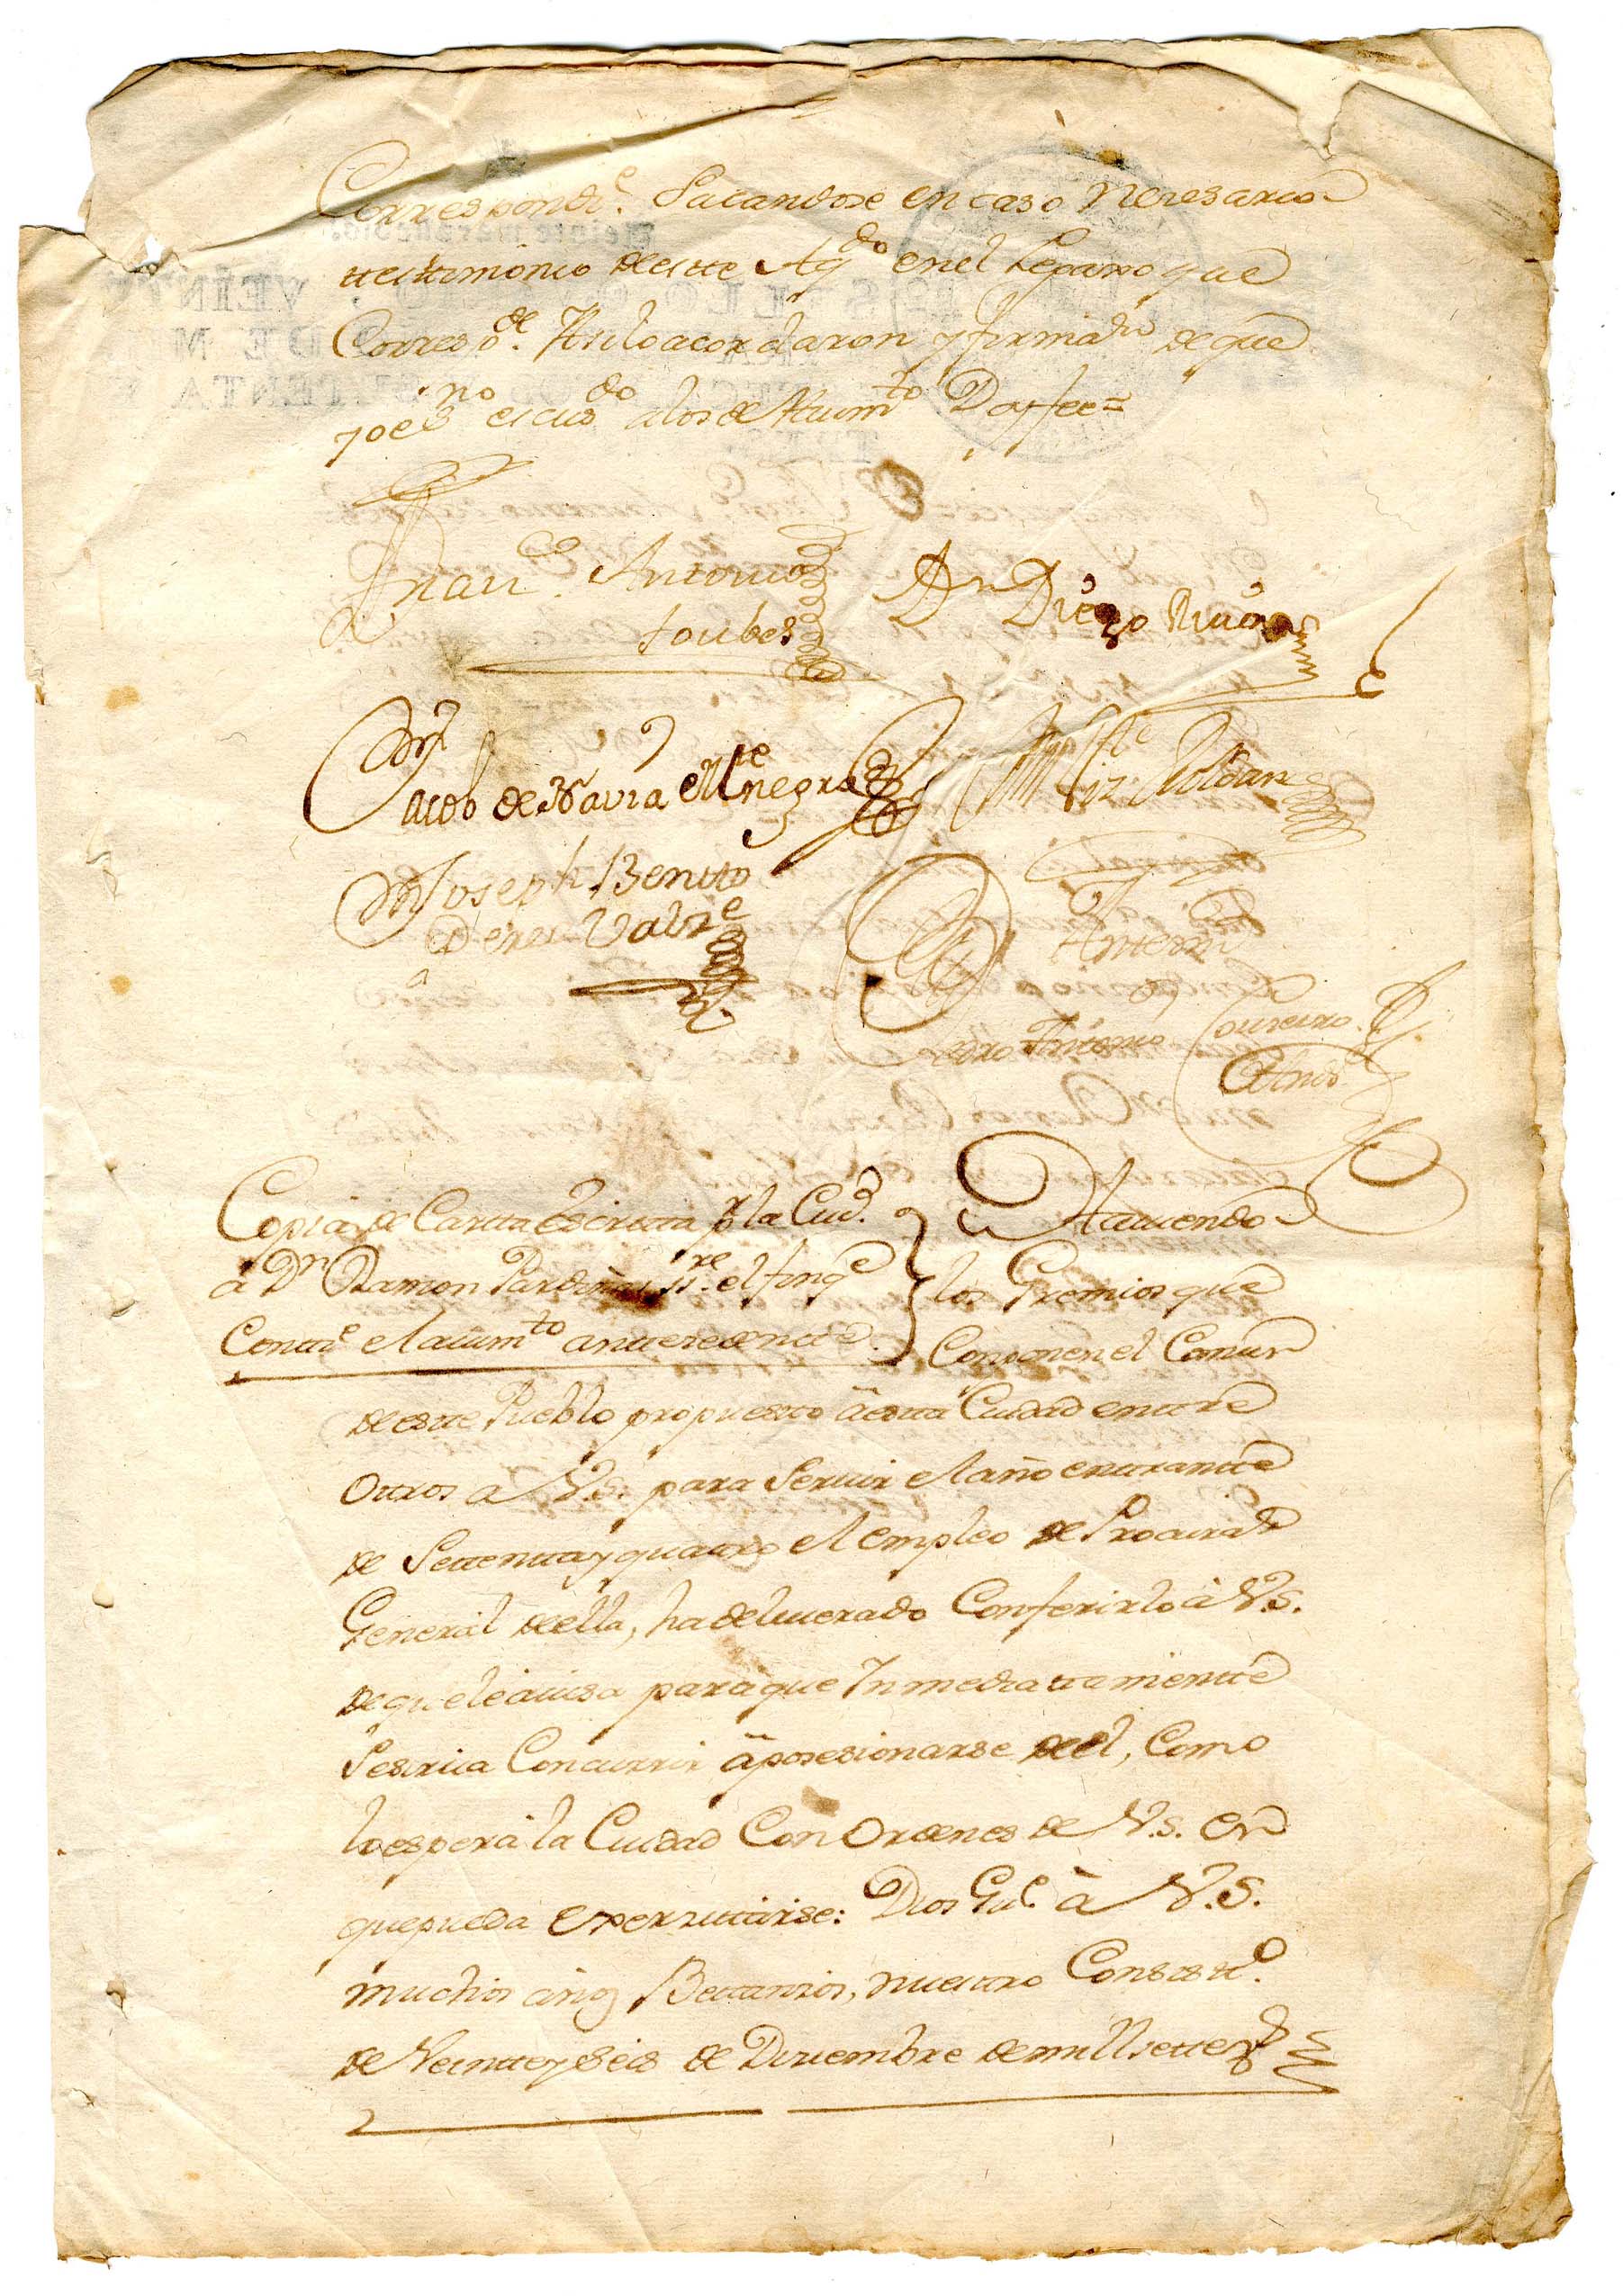 Correspondte. Sacandose en caso Neresario
ttesttimonio de estte Aqdo en el Legaxo que
Correspde. Asilo acordaron y firmaron de que
yo el sno escuso alos de Aiumto Doyfee=
Franco. Antonio
toubes
Dn Diego Rivera
Dn Jacob de Navia Mtenegro
Roldan
Dn Joseph Benito
Perez Valre
Antemi
Pedro Antonio Loureiro
Copia de Cartta Escritta pr la Ciud.
à Dn Ramon Pardiñas sre. el finqe
Contte el aiumto anttezedentte.
Haviendo
los Gremios que
Componen el Comun
de estte Pueblo propuestto à estta Ciudad enttre
Ottros a V.S. para Servir el año enttrantte
de Settentta y quattro el empleo de Procurador
General de ella, ha deliverado Conferirlo à V.S.
de que le avisa para que Inmediattamentte
Sesirva Concurrir à posesionarse de el, Como
lo espera la Ciudad Con Ordenes de V.S. en
que pueda exerzittarse: Dios Gue. à V.S.
muchos años Bettanzos, nuesttro Consistto.
de Veintte y seis de Diziembre de mill settezs